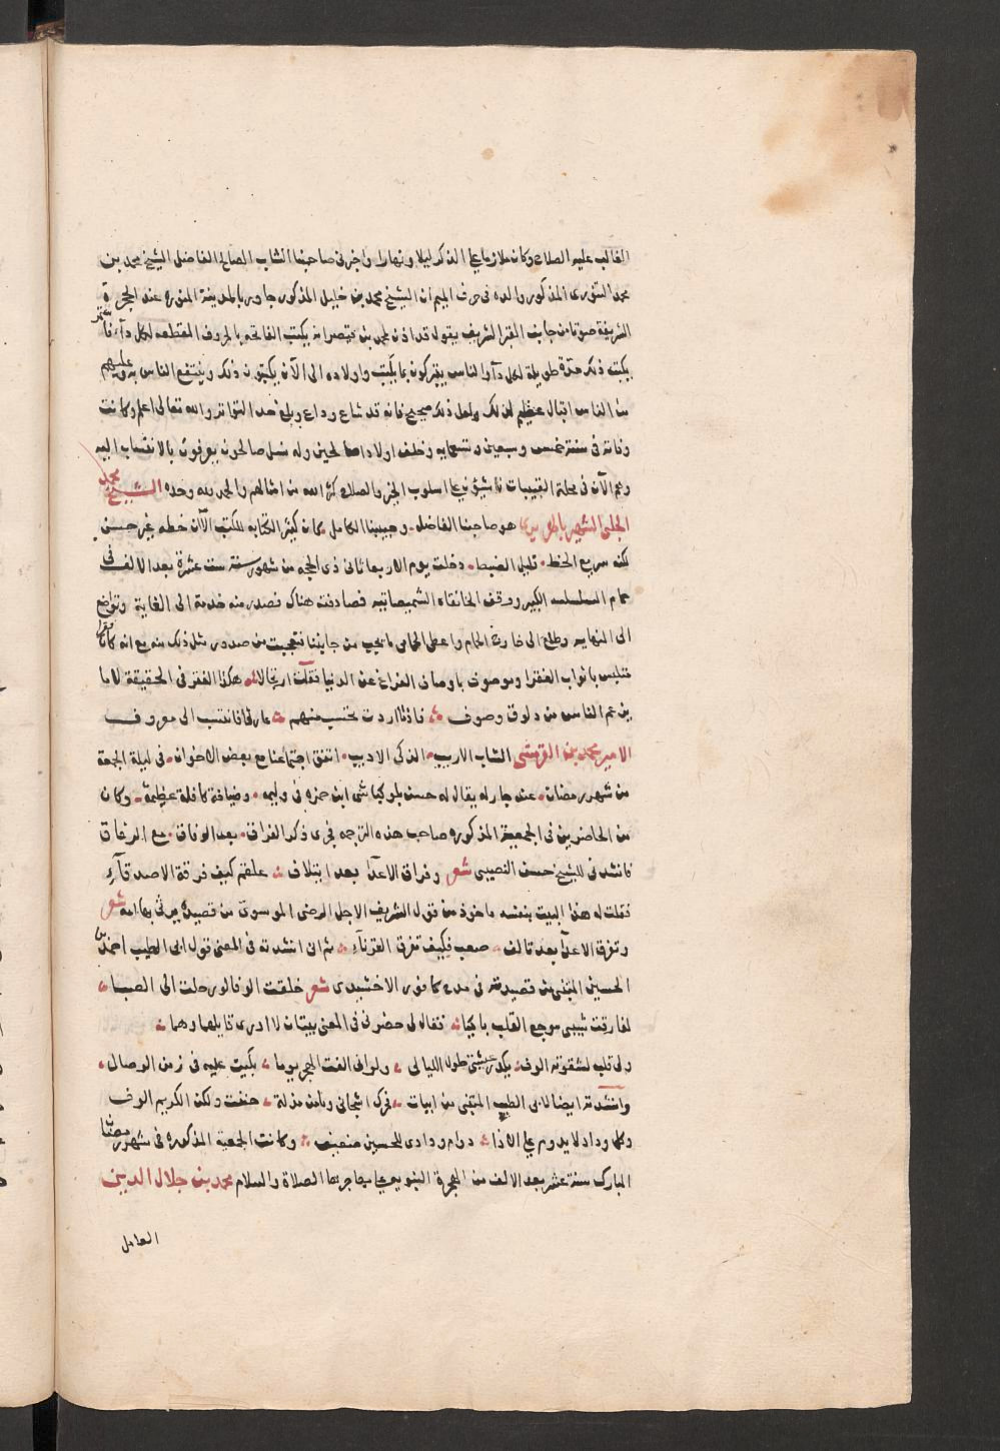 الغالب عليه الصلاح وكان ملازما على الذكر ليلا ونهارا واخبرني صاحبنا الشاب الصالح الفاضل الشيخ محمد بن
محمد التنوري المذكور والده في حرف الميم ان الشيخ محمد بن خليل المذكور جاور بالمدينة المنوره عند الحجرة
الشريفة صوتا من جانب القبر الشريف يقول قد اذن لمحمد بن يكتب الفاتحه بالحروف المقطعه لكل داء
يكتبه ذلك مدة طويلة لكل داء والناس يتبركون بما يكتب واولاده الى الآن يكتبون ذلك وينتفع الناس به وعليهم
من الناس اقبال عظيم لذلك ولعل ذلك صحيح فانه قد شاع وذاع وبلغ حد التواتر والله تعالى اعلم وكانت
وفاته في سنة خمس وسبعين وتسعمايه وخلف اولادا صالحين وله نسل صالحون يعرفون بالانتساب اليه
وهم الآن في محلة القبيبات ناشئون على اسلوب الخير والصلاح كثر الله من امثالهم والحمد لله وحده الشيخ محمد
هو صاحبنا الفاضل وحبيبنا الكامل كان كثير الكتابه للكتب الا ان خطه غير حسن
لكنه سريع الخط قليل الضبط دخلت يوم الاربعا ثاني ذي الحجه من شهور سنة ست عشرة بعد الالف في
حمام السلسله الكبير ووقف الخانقاه الشميصاتيه فصادفته هناك فصدر منه خدمة الى الغاية وتواضع
الى النهايه وطلع الى خارج الحمام واعطى الحمامي ما يجب من جانبنا فتعجبت من صدور مثل ذلك منه مع انه كان
متلبس باثواب الفقرا وموصوف باوصاف الفراغ عن الدنيا فقلت ارتجالا هكذا الفقر في الحقيقة لا ما
يزعم الناس من دلوق وصوف فاذا اردت تحتسب منهم عارفا فانتسب الى معروف
الامير محمد بن القرمشي الشاب الاريب الذكي الاديب اتفق اجتماعنا مع بعض الاخوان في ليلة الجمعة
من شهر رمضان عند جار له يقال له حسن بلوكباشي ابن حمزه في وليمه وضيافة كافلة عظيمة وكان
من الحاضرين في الجمعية المذكوره صاحب هذه الترجمه فجرى ذكر الفراق بعد الوفاق مع الرفاق
فانشدني للشيخ حسن النصيبي شعر وفراق الاعدا بعد ايتلاف علقم كيف فرقة الاصدقآء
فقلت له هذا البيت بنفسه ماخوذ من قول الشريف الاجل الرضى الموسوي من قصيدة يرثي بها امه شعر
وتفرق الاعدا بعد تالف صعب فكيف تفرق القرنآء ثم اني انشدته في المعنى قول ابي الطيب احمد بن
الحسين المتنبي من قصيدته في مدح كافور الاخشيدي شعر خلقت الوفا لو رحلت الى الصبا
لفارقت شيبي موجع القلب باكيا فقال لي حضرني في المعنى بيتان لا ادري قايلهما وهما
ولي قلب لشقوته الوف يكدر عيشتي طول الليالي ولو اني الفت الهجر يوما بكيت عليه في زمن الوصال
وانشدته ايضا لابي الطيب المتنبي من ابيات حننت ولكن الكريم الوف
وكل وداد لا يدوم على الاذا دوام ودادي للحسين ضعيف وكانت الجمعية المذكوره في شهر رمضان
المبارك سنة عشر بعد الالف من الهجرة النبويه على مهاجرها الصلاة والسلام محمد بن جلال الدين
العامل